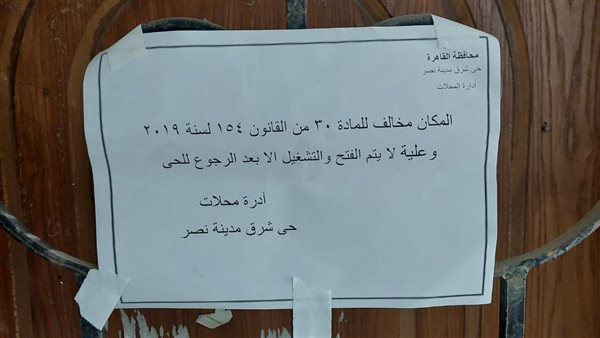 محافظة القاهرة
حى شرق مدينة نصر
أدارة المحلات
المكان مخالف للمادة ٣٠ من القانون ١٥٤ لسنة ٢٠١٩
وعلية لا يتم الفتح والتشغيل الا بعد الرجوع للحى
أدرة محلات
حى شرق مدينة نصر